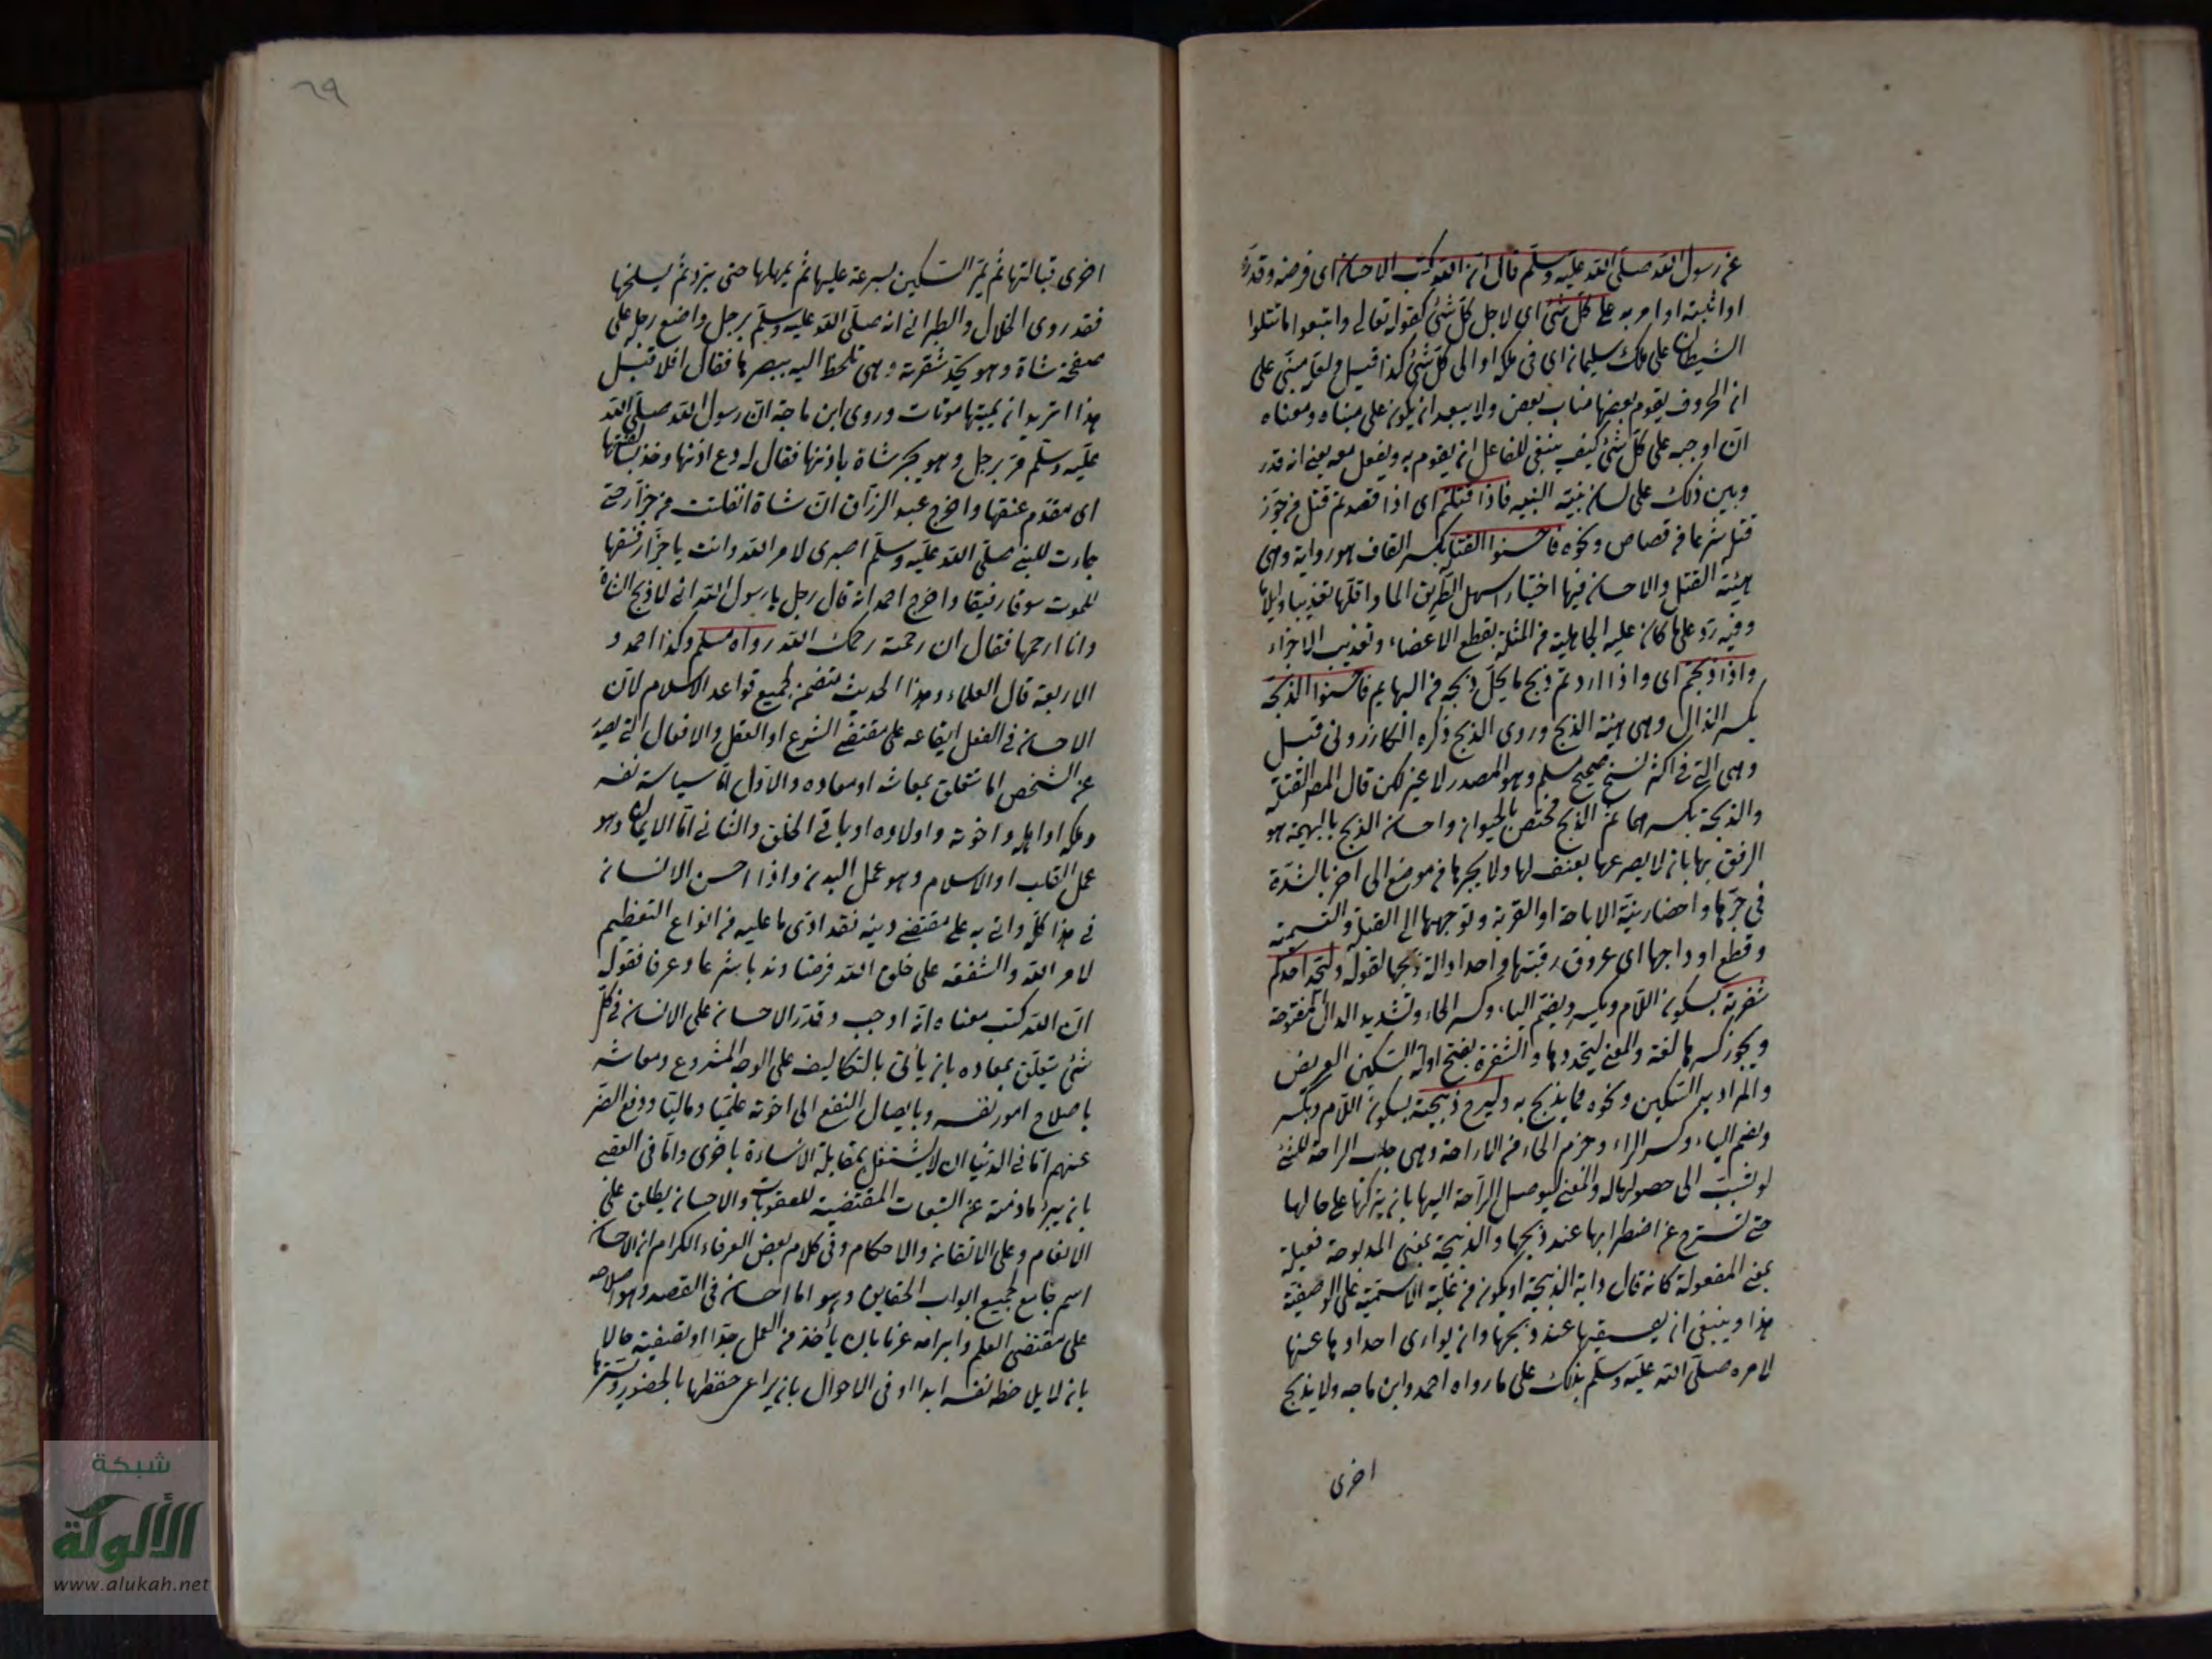 عن رسول الله صلى الله عليه وسلم قال ان الله كتب الاحسان اى فرضه وقدره
او اثبته او امر به على كل شئ اى لاجل كل شئ كقوله تعالى واتبعوا ما تتلوا
الشيطان على ملك سليمان اى فى ملكه او الى كل شئ كذا قيل ولعله مبنى على
ان الحروف يقوم بعضها مناب بعض ولا يبعد ان يكون على مبناه ومعناه
ان اوجبه على كل شئ كيف ينبغى للفاعل ان يقوم به ويفعل معه يعنى انه قدر
وبين ذلك على لسان نبيه النبيه فاذا قتلتم اى اذا قصدتم قتل من جوز
قتله شرعا من قصاص ونحوه فاحسنوا القتلة بكسر القاف هو رواية وهى
هيئة القتل والاحسان فيها اختيار اسهل الطريق الما واقلها تعذيبا وايلاما
وفيه رد على ما كان عليه الجاهلية من المثلة بقطع الاعضاء وتعذيب الاجزاء
واذا ذبحتم اى واذا اردتم ذبح ما يحل ذبحه من البهايم فاحسنوا الذبحة
بكسر الذال وهى هيئة الذبح وروى الذبح ذكره الكازرونى قيل
وهى التى فى اكثر نسخ صحيح مسلم وهو المصدر لا غير لكن قال المص القتلة
والذبحة بكسرهما ثم الذبح مختص بالحيوان واحسان الذبح بالبهيمة هو
الرفق بها بان لا يصرعها بعنف لها ولا يجرها من موضع الى اخر بالشدة
فى جرها واحضار نية الاباحة او القربة وتوجهها الى القبلة والتسمية
وقطع اوداجها اى عروق رقبتها واحداد الة ذبحها لقوله وليحد احدكم
شفرته بسكون اللام وبكسر ويضم الياء وكسر الحاء وتشديد الدال المفتوحة
ويجوز كسرها لغة والمعنى ليحددها والشفرة بفتح اوله السكين العريض
والمراد به السكين ونحوه مما يذبح به وليرح ذبيحته بسكون اللام وبكسر
وبضم الياء وكسر الراء وجزم الحاء من الاراحة وهى جلب الراحة للشئ
لو تسبب الى حصولها له والمعنى ليوصل الراحة اليها بان يتركها على حالها
حتى تستريح عن اضطرابها عند ذبحها والذبيحة بمعنى المذبوحة فعيلة
بمعنى المفعولة كانه قال دابة الذبيحة او يكون من غلبة الاسمية على الوصفية
هذا وينبغى ان يسقيها عند ذبحها وان يوارى احدادها عنها
لامره صلى الله عليه وسلم بذلك على ما رواه احمد وابن ماجه ولا يذبح
اخرى
٦٩
اخرى قبالتها ثم يمر السكين بسرعة عليها ثم يمهلها حتى تبرد ثم يسلخها
فقد روى الخلال والطبرانى انه صلى الله عليه وسلم مر برجل واضع رجله على
صفحة شاة وهو يحد شفرته وهى تلحظ اليه ببصرها فقال افلا قبل
هذا اتريد ان تميتها موتات وروى ابن ماجة ان رسول الله صلى الله
عليه وسلم مر برجل وهو يجر شاة باذنها فقال له دع اذنها وخذ بسالفتها
اى مقدم عنقها واخرج عبد الرزاق ان شاة انفلتت من جزار حتى
جاءت للنبى صلى الله عليه وسلم اصبرى لامر الله وانت يا جزار فسقها
للموت سوقا رفيقا واخرج احمد انه قال رجل يا رسول الله انى لاذبح الشاة
وانا ارحمها فقال ان رحمتها رحمك الله رواه مسلم وكذا احمد و
الاربعة قال العلماء وهذا الحديث متضمن لجميع قواعد الاسلام لان
الاحسان فى الفعل ايقاعه على مقتضى الشرع او العقل والافعال التى يصدر
عن الشخص اما متعلق بمعاشه او معاده والاول اما سياسة نفسه
وملكه او اهله واخوته واولاده او باقى الخلق والثانى اما الايمان وهو
عمل القلب او الاسلام وهو عمل البدن واذا احسن الانسان
فى هذا كله واتى به على مقتضى دينه فقد ادى ما عليه من انواع التعظيم
لامر الله والشفقة على خلق الله فرضا وندبا شرعا وعرفا فقوله
ان الله كتب معناه انه اوجب وقدر الاحسان على الانسان فى كل
شئ يتعلق بمعاده بان يأتى بالتكاليف على الوجه المشروع ومعاشه
باصلاح امور نفسه وبايصال النفع الى اخوته علميا وماليا ودفع الضر
عنهم اما فى الدنيا ان لا يشتغل بمقابلة الاساءة باخرى واما فى العقبى
بان يبرئ ما ذمته عن التبعات المقتضية للعقوبات والاحسان يطلق على
الانعام وعلى الاتقان والاحكام وفى كلام بعض العرفاء الكرام ان الاحسان
اسم جامع لجميع ابواب الحقايق وهو اما احسان فى القصد وهو اصلاحه
على مقتضى العلم وابرامه عزما بان يأخذ من العمل جدا او تصفيته حالا
بان لا يلاحظ نفسه ابدا او فى الاحوال بان يراعى حفظها بالحضور وسترها
شبكة
الألوكة
www.alukah.net